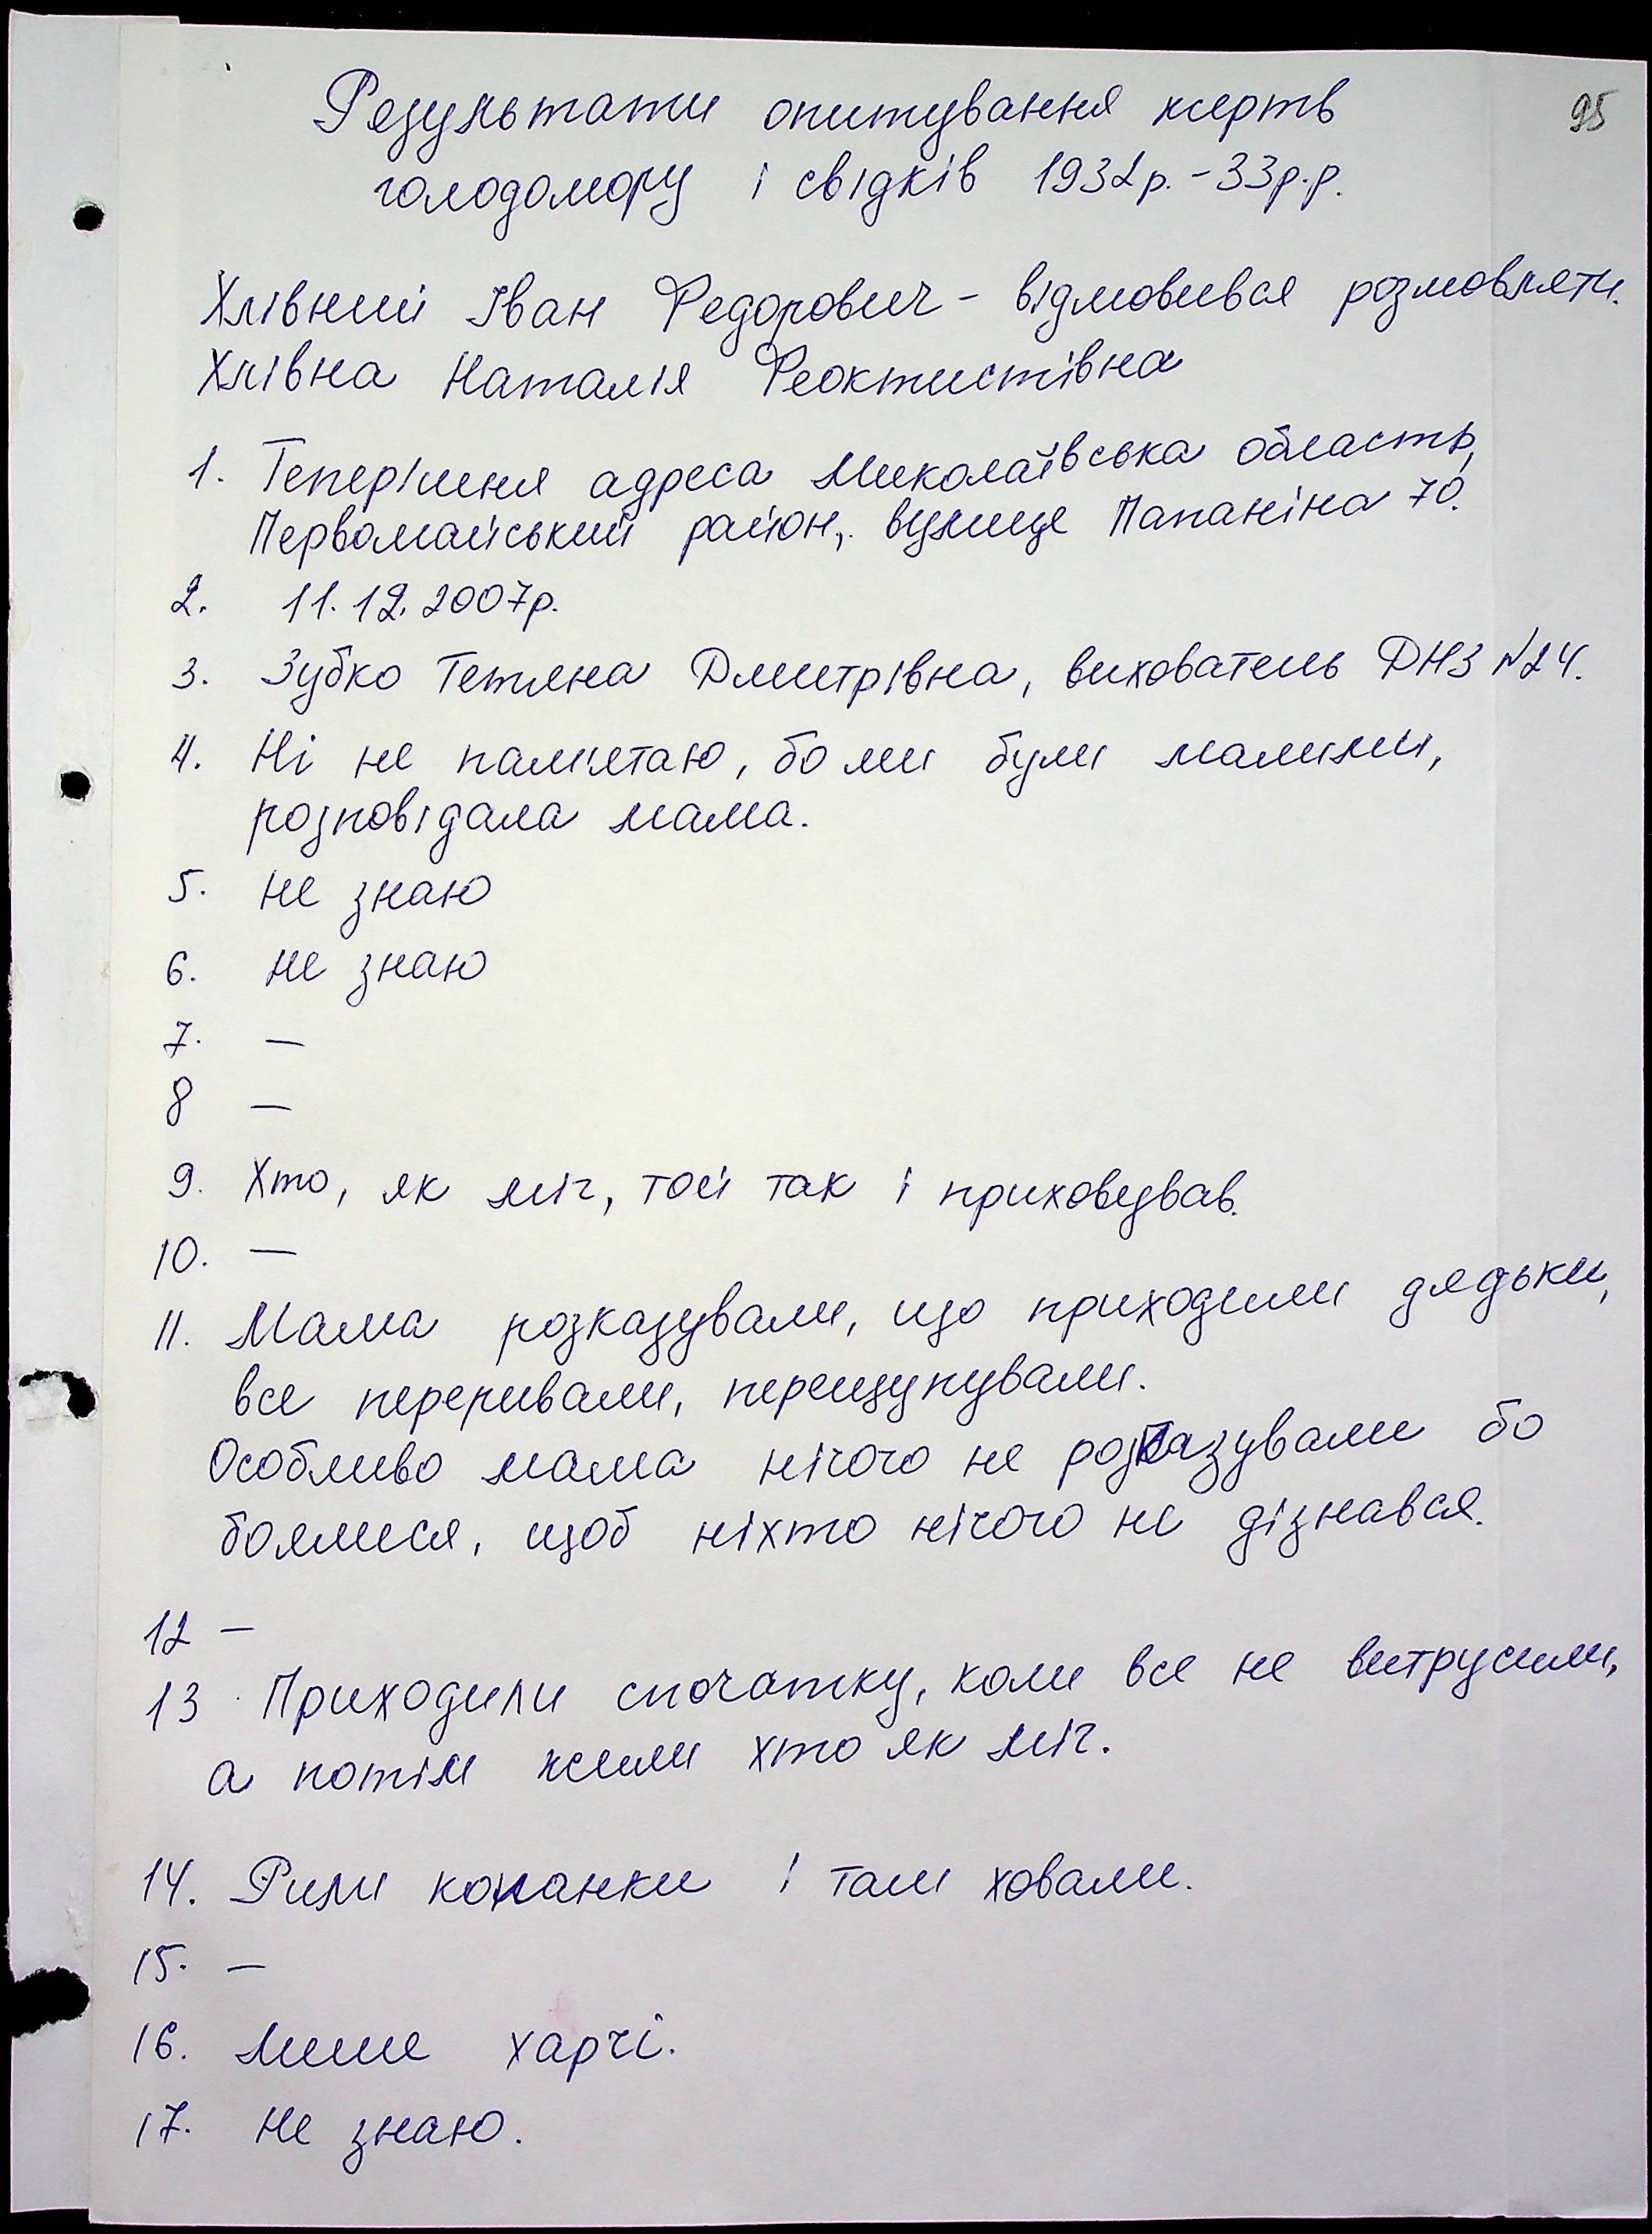 95
Результати опитування жертв
голодомору і свідків 1932р.-33р.р.
Хлівний Іван Федорович - відмовився розмовляти.
Хлівна Наталія Феоктистівна
1. Теперішня адреса Миколаївська область,
Первомайський район, вулиця Папаніна 70.
2. 11.12.2007р.
3. Зубко Тетяна Дмитрівна, вихователь ДНЗ №24.
4. Ні не пам'ятаю, бо ми були малими,
розповідала мама.
5. не знаю
6. не знаю
7. —
8 —
9. Хто, як міг, той так і приховував.
10. —
11. Мама розказували, що приходили дядьки,
все переривали, перещупували.
Особливо мама нічого не розказували бо
боялися, щоб ніхто нічого не дізнався.
12 —
13 Приходили спочатку, коли все не витрусили,
а потім жили хто як міг.
14. Рили копанки і там ховали.
15. —
16. Лише харчі.
17. Не знаю.